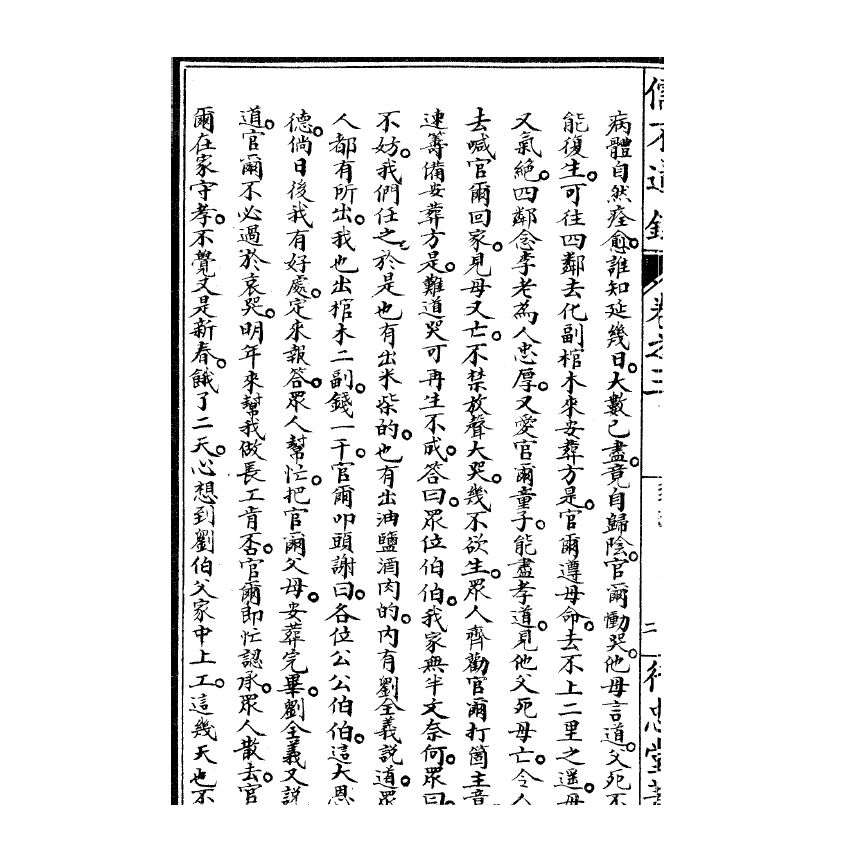 病體自然痊愈。誰知延幾日。大數已盡。竟自歸陰。官爾慟哭。他母言道。父死不
能復生。可往四鄰去化副棺木來安葬方是。官爾遵母命。去不上二里之遥。母
又氣絶。四鄰念李老為人忠厚。又愛官爾童子。能盡孝道。見他父死母亡。令人
去喊官爾回家。見母又亡。不禁放聲大哭。幾不欲生。眾人齊勸官爾打箇主音
連籌備安葬方是。難道哭可再生不成。答曰。眾位伯伯。我家無半文奈何。眾曰。
不妨。我們任之。於是也有出米柴的。也有出油鹽酒肉的。內有劉全義說道。眾
人都有所出。我也出棺木二副。錢一千。官爾叩頭謝曰。各位公公伯伯。這大恩
德。倘日後我有好處。定來報答。眾人幫忙。把官爾父母安葬完畢。劉全義又説
道。官爾不必過於哀哭。明年來幫我做長工肯否。官爾即忙認承。眾人散去。官
爾在家守孝。不覺又是新春。餓了二天。心想到劉伯父家中上工。這幾天也不
卷之三
二